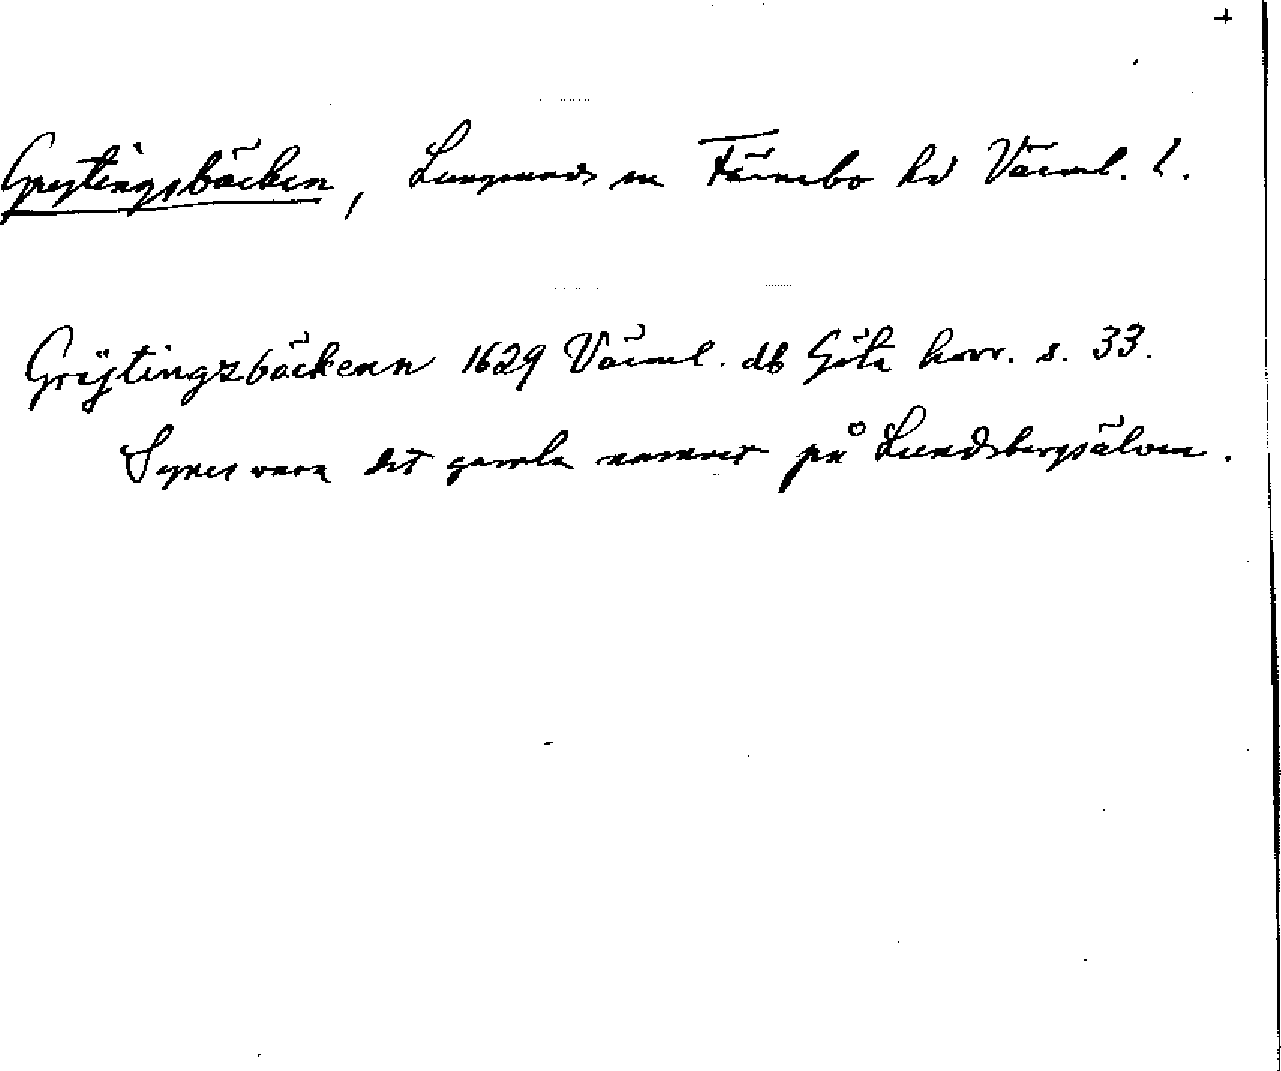 +
Grytingsbäcken, Lungsunds sn Färnebo hd Värml. l.
Grÿtingzbäckenn 1629 Värml. db Göta hovr. s. 33.
Synes vara det gamla namnet på Lundsbergsälven.